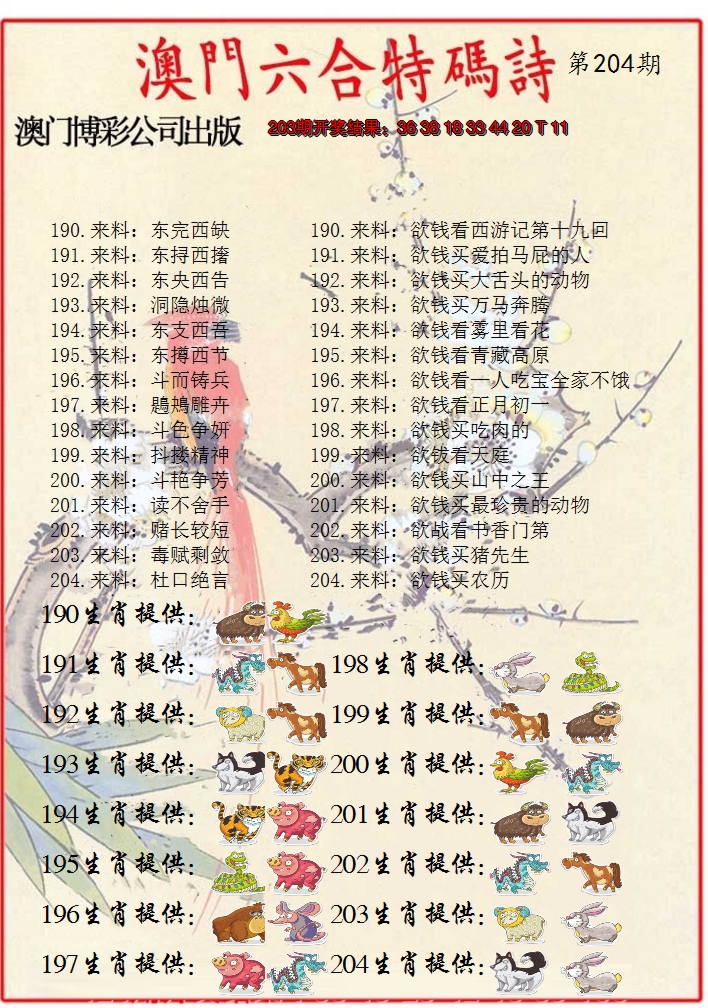 澳門六合特碼詩 第204期
澳门博彩公司出版 203期开奖结果：36 38 18 33 44 20 T 11
190.来料：东完西缺 190.来料：欲钱看西游记第十九回
191.来料：东挦西撦 191.来料：欲钱买爱拍马屁的人
192.来料：东央西告 192.来料：欲钱买大舌头的动物
193.来料：洞隐烛微 193.来料：欲钱买万马奔腾
194.来料：东支西吾 194.来料：欲钱看雾里看花
195.来料：东撙西节 195.来料：欲钱看青藏高原
196.来料：斗而铸兵 196.来料：欲钱看一人吃宝全家不饿
197.来料：鶗鴂雕卉 197.来料：欲钱看正月初一
198.来料：斗色争妍 198.来料：欲钱买吃肉的
199.来料：抖搂精神 199.来料：欲钱看天庭
200.来料：斗艳争芳 200.来料：欲钱买山中之王
201.来料：读不舍手 201.来料：欲钱买最珍贵的动物
202.来料：赌长较短 202.来料：欲战看书香门第
203.来料：毒赋剩敛 203.来料：欲钱买猪先生
204.来料：杜口绝言 204.来料：欲钱买农历
190生肖提供：
191生肖提供： 198生肖提供：
192生肖提供： 199生肖提供：
193生肖提供： 200生肖提供：
194生肖提供： 201生肖提供：
195生肖提供： 202生肖提供：
196生肖提供： 203生肖提供：
197生肖提供： 204生肖提供：